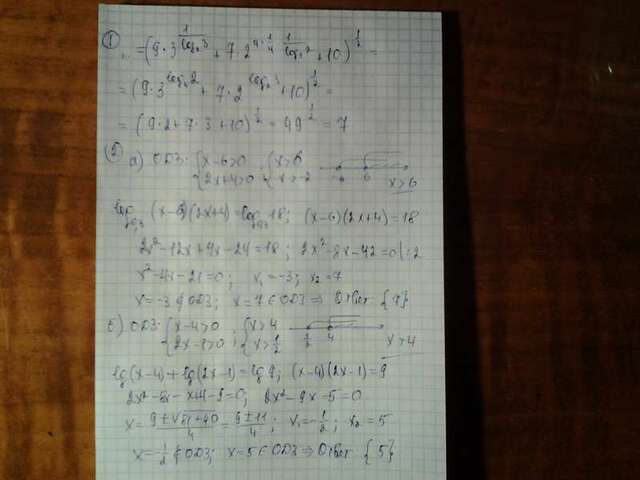 1) ... = (9·3^(1/log₂3) + 7·2^(4·1/4·1/log₃2) + 10)^(1/2) =
= (9·3^(log₃2) + 7·2^(log₂3) + 10)^(1/2) =
= (9·2+7·3+10)^(1/2) = 49^(1/2) = 7
2) а) ОДЗ: {x-6>0 {2x+4>0 ; {x>6 {x>-2 6 x>6
log₀,₃(x-6)(2x+4)=log₀,₃18; (x-6)(2x+4)=18
2x²-12x+4x-24=18; 2x²-8x-42=0|:2
x²-4x-21=0; x₁=-3; x₂=7
x=-3∉ОДЗ; x=7∈ОДЗ ⇒ Ответ {7}
б) ОДЗ: {x-4>0 {2x-1>0 ; {x>4 {x>1/2 1/2 4 x>4
lg(x-4)+lg(2x-1)=lg9; (x-4)(2x-1)=9
2x²-8x-x+4-9=0; 2x²-9x-5=0
x=(9±√(81+40))/4=(9±11)/4; x₁=-1/2; x₂=5
x=-1/2∉ОДЗ; x=5∈ОДЗ ⇒ Ответ {5}